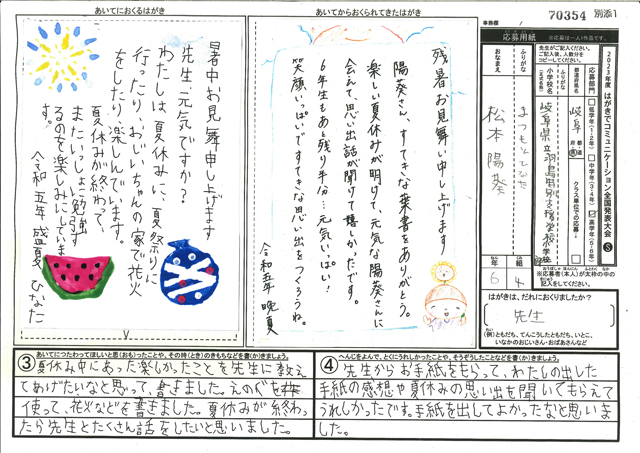 70354 別添1
事務欄
あいてにおくるはがき
あいてからおくられてきたはがき
暑中お見舞申し上げます
先生、元気ですか?
わたしは、夏休みに、夏祭りに
行ったり、おじいちゃんの家で花火
をしたり、楽しんでいます。
夏休みが終わって、
またいっしょに勉強す
るのを楽しみにしていま
す。
令和五年 盛夏 ひなた
残暑お見舞い申し上げます
陽葵さん、すてきな葉書をありがとう。
楽しい夏休みが明けて、元気な陽葵さんに
会えて、思い出話が聞けて嬉しかったです。
6年生もあと残り半分…元気いっぱい!
笑顔いっぱいですてきな思い出をつくろうね。
令和五年 晩夏
2023年度 はがきでコミュニケーション全国発表大会 S
応募用紙
※応募は一人1作品です。
先生がご記入ください。
人数分、お手数ですが
コピーしてください。
応募部門
低学年(1・2年)
中学年(3・4年)
高学年(5・6年)
都道府県名
岐阜
都 道 府 県
クラス単位での応募
ふりがな
小学校名
(正式名称)
岐阜県立羽島特別支援学校小学部
ふりがな
まつもとひなた
おなまえ
松本 陽葵
年 6
組 4
※応募者(本人)が太枠の中の
記入をしてください。
はがきは、だれにおくりましたか?
先生
(例)ともだち、てんこうしたともだち、いとこ、
いなかのおじいさん・おばあさんなど
③ あいてにつたわってほしいと思(おも)ったことや、その時(とき)のきもちなどを書(か)きましょう。
夏休み中にあった楽しかったことを先生に教え
てあげたいなと思って、書きました。えのぐを
使って、花火などを書きました。夏休みが終わっ
たら先生とたくさん話をしたいと思いました。
④ へんじをよんで、とくにうれしかったことや、そうぞうしたことなどを書(か)きましょう。
先生からお手紙をもらって、わたしの出した
手紙の感想や夏休みの思い出を聞いてもらえて
うれしかったです。手紙を出してよかったなと思いま
した。